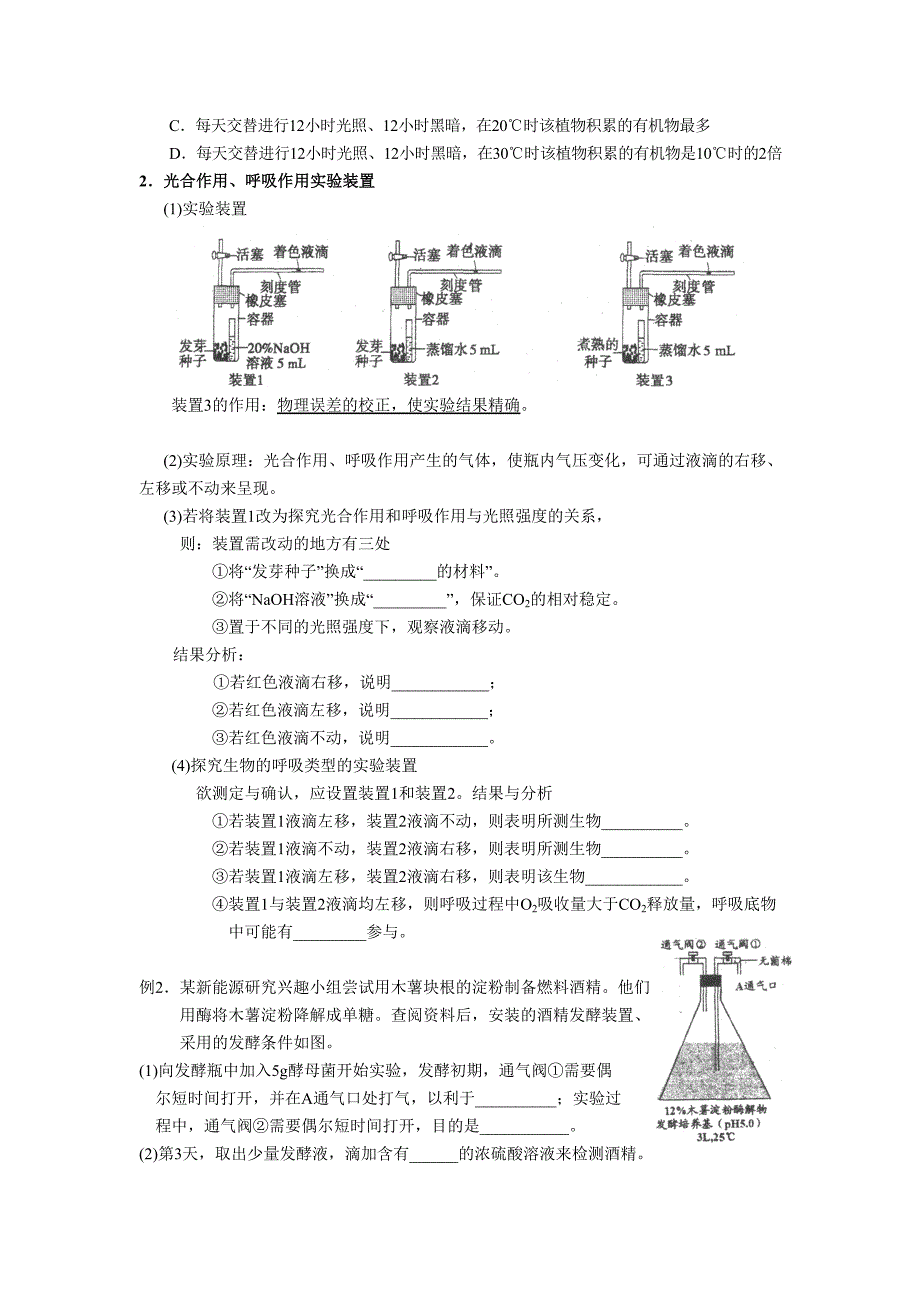 C．每天交替进行12小时光照、12小时黑暗，在20℃时该植物积累的有机物最多
D．每天交替进行12小时光照、12小时黑暗，在30℃时该植物积累的有机物是10℃时的2倍
2．光合作用、呼吸作用实验装置
(1)实验装置
活塞 着色液滴
刻度管
橡皮塞
容器
发芽种子
20%NaOH溶液 5 mL
装置1
活塞 着色液滴
刻度管
橡皮塞
容器
发芽种子
蒸馏水 5 mL
装置2
活塞 着色液滴
刻度管
橡皮塞
容器
煮熟的种子
蒸馏水 5 mL
装置3
装置3的作用：物理误差的校正，使实验结果精确。
(2)实验原理：光合作用、呼吸作用产生的气体，使瓶内气压变化，可通过液滴的右移、
左移或不动来呈现。
(3)若将装置1改为探究光合作用和呼吸作用与光照强度的关系，
则：装置需改动的地方有三处
①将“发芽种子”换成“_________的材料”。
②将“NaOH溶液”换成“_________”，保证CO₂的相对稳定。
③置于不同的光照强度下，观察液滴移动。
结果分析：
①若红色液滴右移，说明____________；
②若红色液滴左移，说明____________；
③若红色液滴不动，说明____________。
(4)探究生物的呼吸类型的实验装置
欲测定与确认，应设置装置1和装置2。结果与分析
①若装置1液滴左移，装置2液滴不动，则表明所测生物__________。
②若装置1液滴不动，装置2液滴右移，则表明所测生物__________。
③若装置1液滴左移，装置2液滴右移，则表明该生物____________。
④装置1与装置2液滴均左移，则呼吸过程中O₂吸收量大于CO₂释放量，呼吸底物
中可能有_________参与。
例2．某新能源研究兴趣小组尝试用木薯块根的淀粉制备燃料酒精。他们
用酶将木薯淀粉降解成单糖。查阅资料后，安装的酒精发酵装置、
采用的发酵条件如图。
(1)向发酵瓶中加入5g酵母菌开始实验，发酵初期，通气阀①需要偶
尔短时间打开，并在A通气口处打气，以利于__________；实验过
程中，通气阀②需要偶尔短时间打开，目的是___________。
(2)第3天，取出少量发酵液，滴加含有______的浓硫酸溶液来检测酒精。
通气阀② 通气阀①
无菌棉
A通气口
12%木薯淀粉酶解物
发酵培养基（pH5.0）
3L,25℃